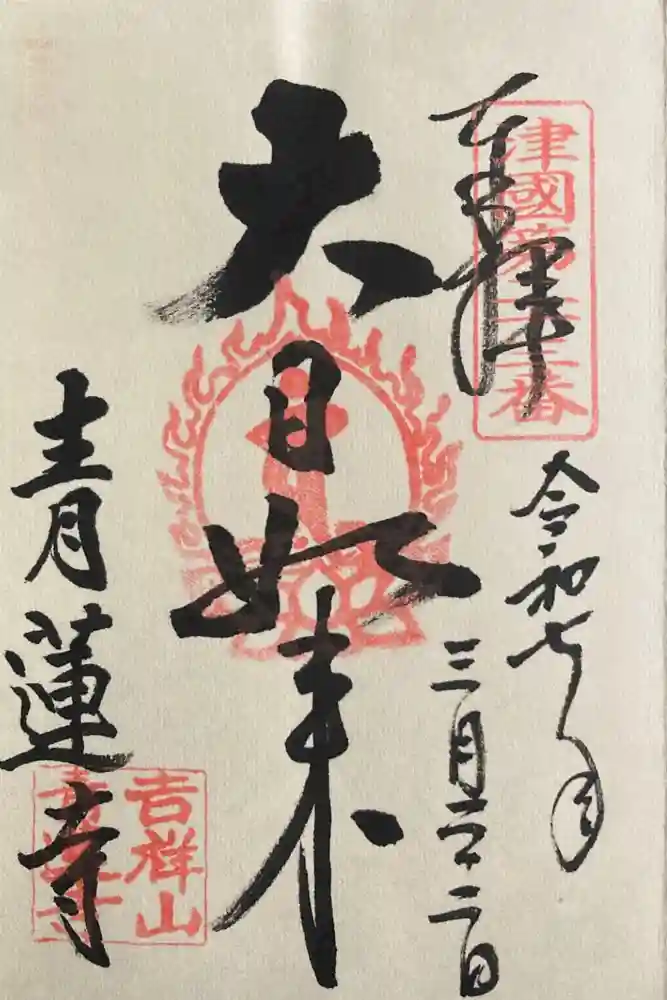 奉拝
津國第二十三番
令和七年
三月二十二日
大日如来
青蓮寺
吉祥山
青蓮寺